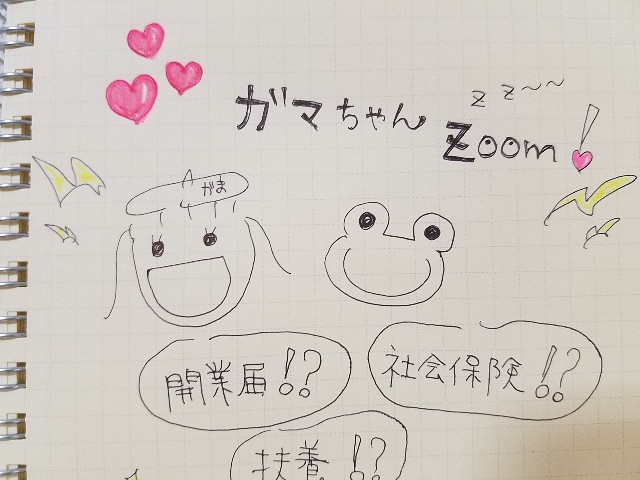 z z~~
ガマちゃん Zoom!
がま
開業届!?
社会保険!?
扶養!?